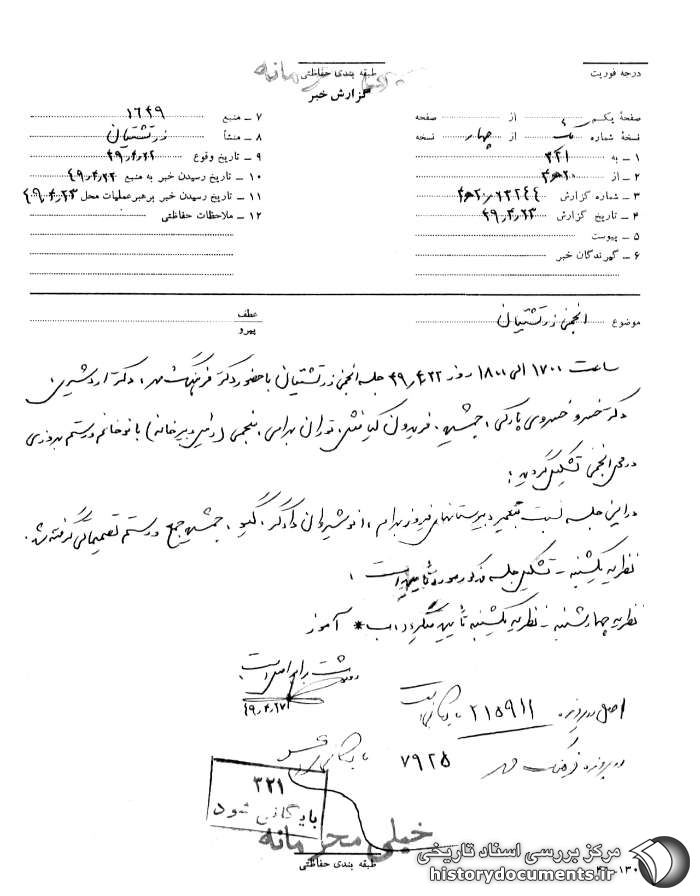 درجه فوریت
طبقه بندی حفاظتی
خیلی محرمانه
گزارش خبر
صفحهٔ یکم از صفحه
نسخهٔ شماره یک از چهار نسخه
۱ - به ۳۲۱
۲ - از ۲۰ھ۳
۳ - شماره گزارش
۴ - تاریخ گزارش ۴۹٫۴٫۲۳
۵ - پیوست
۶ - گیرندگان خبر
۷ - منبع ۱۶۴۹
۸ - منشأ زرتشتیان
۹ - تاریخ وقوع ۴۹٫۴٫۲۲
۱۰ - تاریخ رسیدن خبر به منبع ۴۹٫۴٫۲۲
۱۱ - تاریخ رسیدن خبر برهبر عملیات محل ۴۹٫۴٫۲۳
۱۲ - ملاحظات حفاظتی
موضوع انجمن زرتشتیان
عطف
پیرو
ساعت ۱۷۰۰ الی ۱۸۰۰ روز ۴۹٫۴٫۲۲ جلسه انجمن زرتشتیان با حضور دکتر فرهنگ مهر، دکتر اردشیری،
دکتر خسرو خسروی پارکی، جمشید، فریدون کیانمنش، توران بهرامی، منجمی (رئیس دبیرخانه) بانو خانم و رستم بهروزی
در محل انجمن تشکیل گردید:
در این جلسه نسبت به تعمیر دبیرستانهای فیروز بهرام، انوشیروان دادگر، گیو، جمشید جم و رستم تصمیماتی گرفته شد.
نظریه یکشنبه - تشکیل جلسه مذکور مورد تأیید است.
نظریه چهارشنبه - نظریه یکشنبه تأیید میگردد. ب* آموز
رونوشت برابر اصل است
۴۹٫۴٫۲۷
اصل در پرونده ۲۱۵۹۱۱ بایگانی است
در پرونده فرهنگ مهر ۷۹۲۵ بایگانی
۳۲۱
بایگانی شود
خیلی محرمانه
طبقه بندی حفاظتی
مرکز بررسی اسناد تاریخی
historydocuments.ir